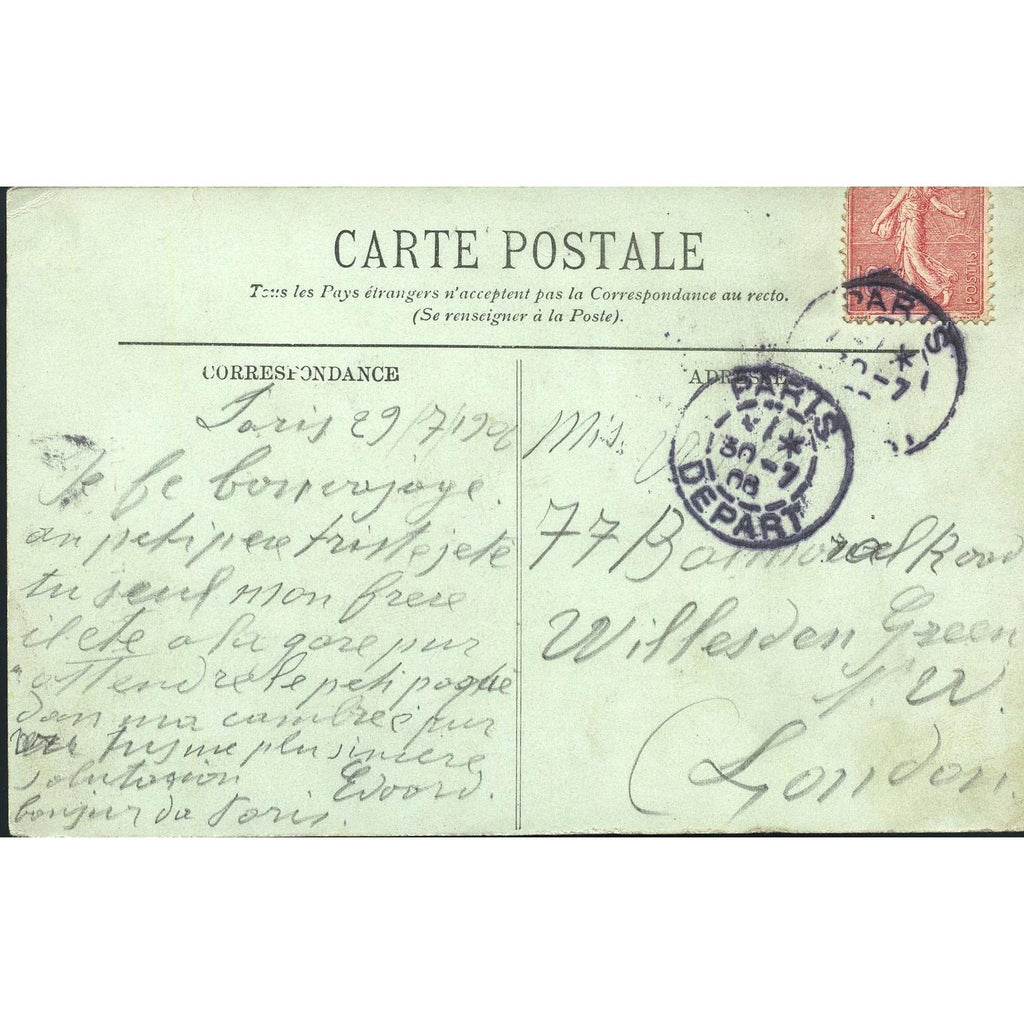 CARTE POSTALE
Tous les Pays étrangers n'acceptent pas la Correspondance au recto.
(Se renseigner à la Poste).
CORRESPONDANCE
Paris 29/7/190
Je fe bonvojage.
an petipere triste jeté
tu seul mon frere
il eté a la gare pur
attendre le peti paqué
dan ma cambre pur
tus me plu sincere
solutasion Edoord.
bonjur da Paris.
ADRESSE
Mis.
77 Balmoral Road
Willesden Green
London.
POSTES
PARIS
7
PARIS
DEPART
7